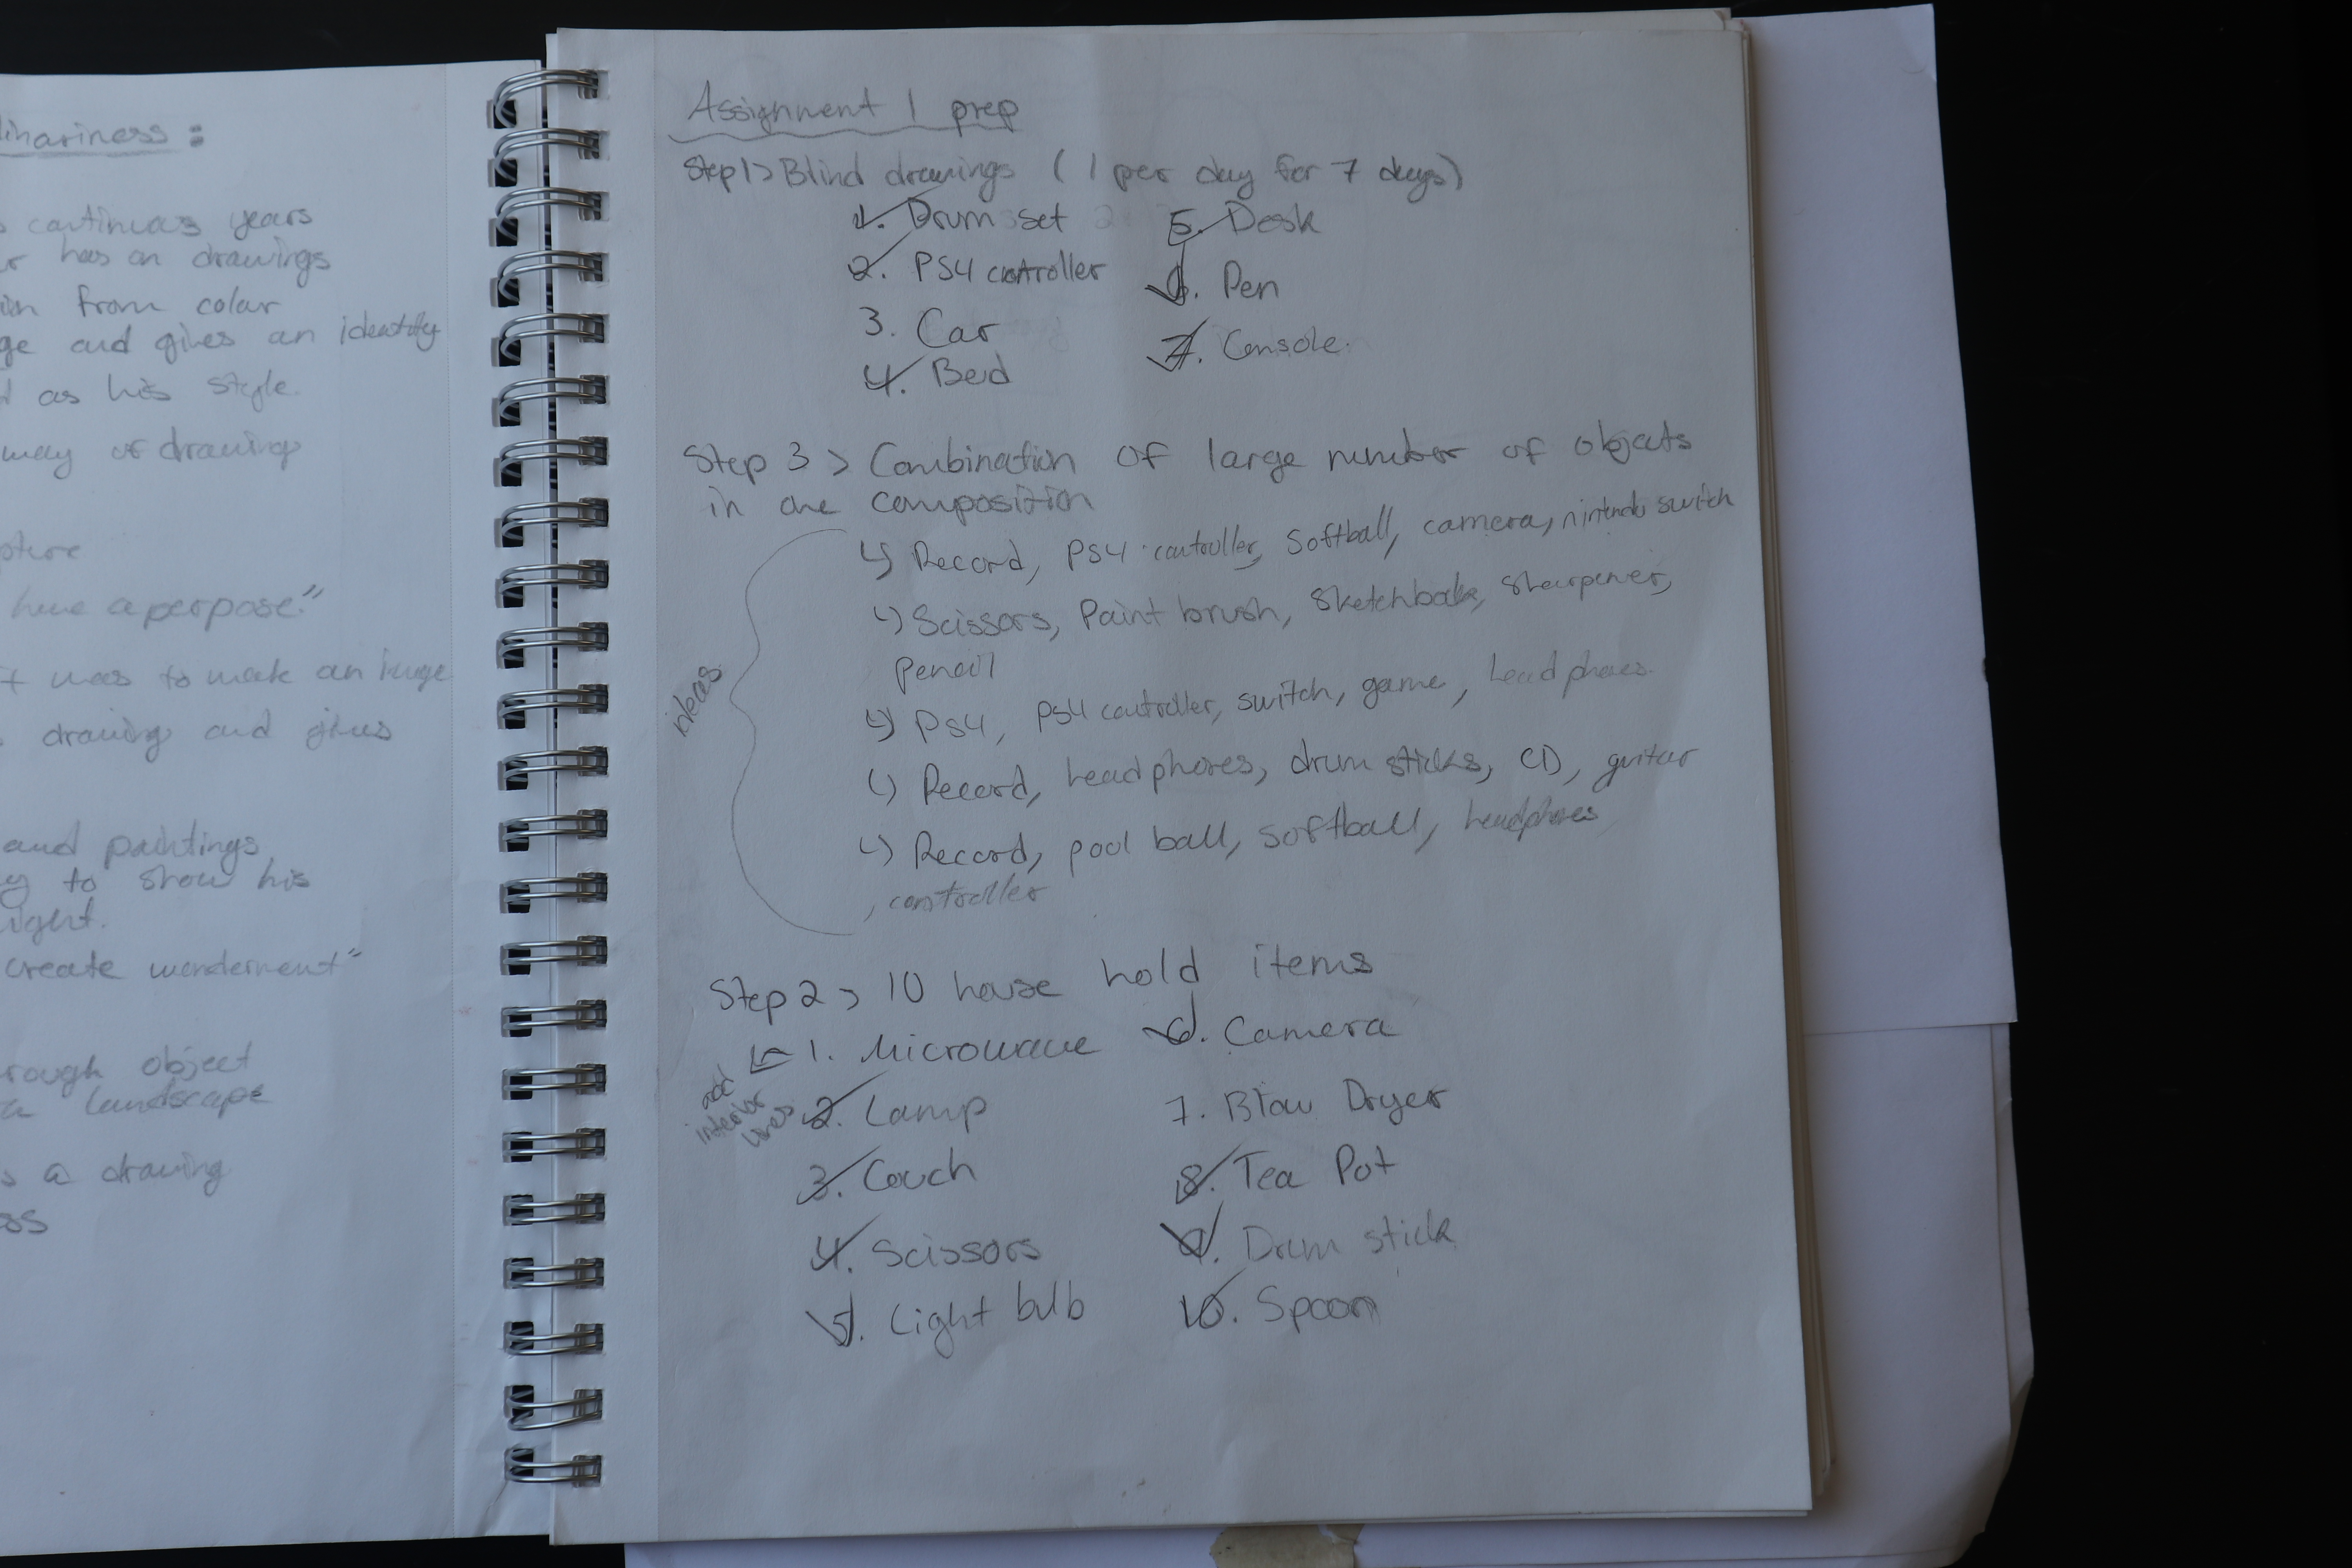 linariness:
continuas years
has on drawings
from colar
and gives an identity
as his style.
way of drawing
have a perpose."
was to make an image
drawing and gives
and paintings
to show his
create wonderment"
rough object
landscape
a drawing
Assignment 1 prep
Step 1> Blind drawings (1 per day for 7 days)
1. Drum set 5. Desk
2. PS4 controller 6. Pen
3. Car 7. Console.
4. Bed
Step 3 > Combination of large number of objects
in one composition
ideas
↳ Record, PS4 controller, Softball, camera, nintendo switch
↳ Scissors, Paint brush, Sketchbook, sharpener,
pencil
↳ PS4, PS4 controller, switch, game, headphones.
↳ Record, headphones, drum sticks, CD, guitar
↳ Record, pool ball, softball, headphones
, controller
Step 2 > 10 house hold items
1. Microwave 6. Camera
add
interior
lines
2. Lamp 7. Blow Dryer
3. Couch 8. Tea Pot
4. Scissors 9. Drum stick
5. Light bulb 10. Spoon